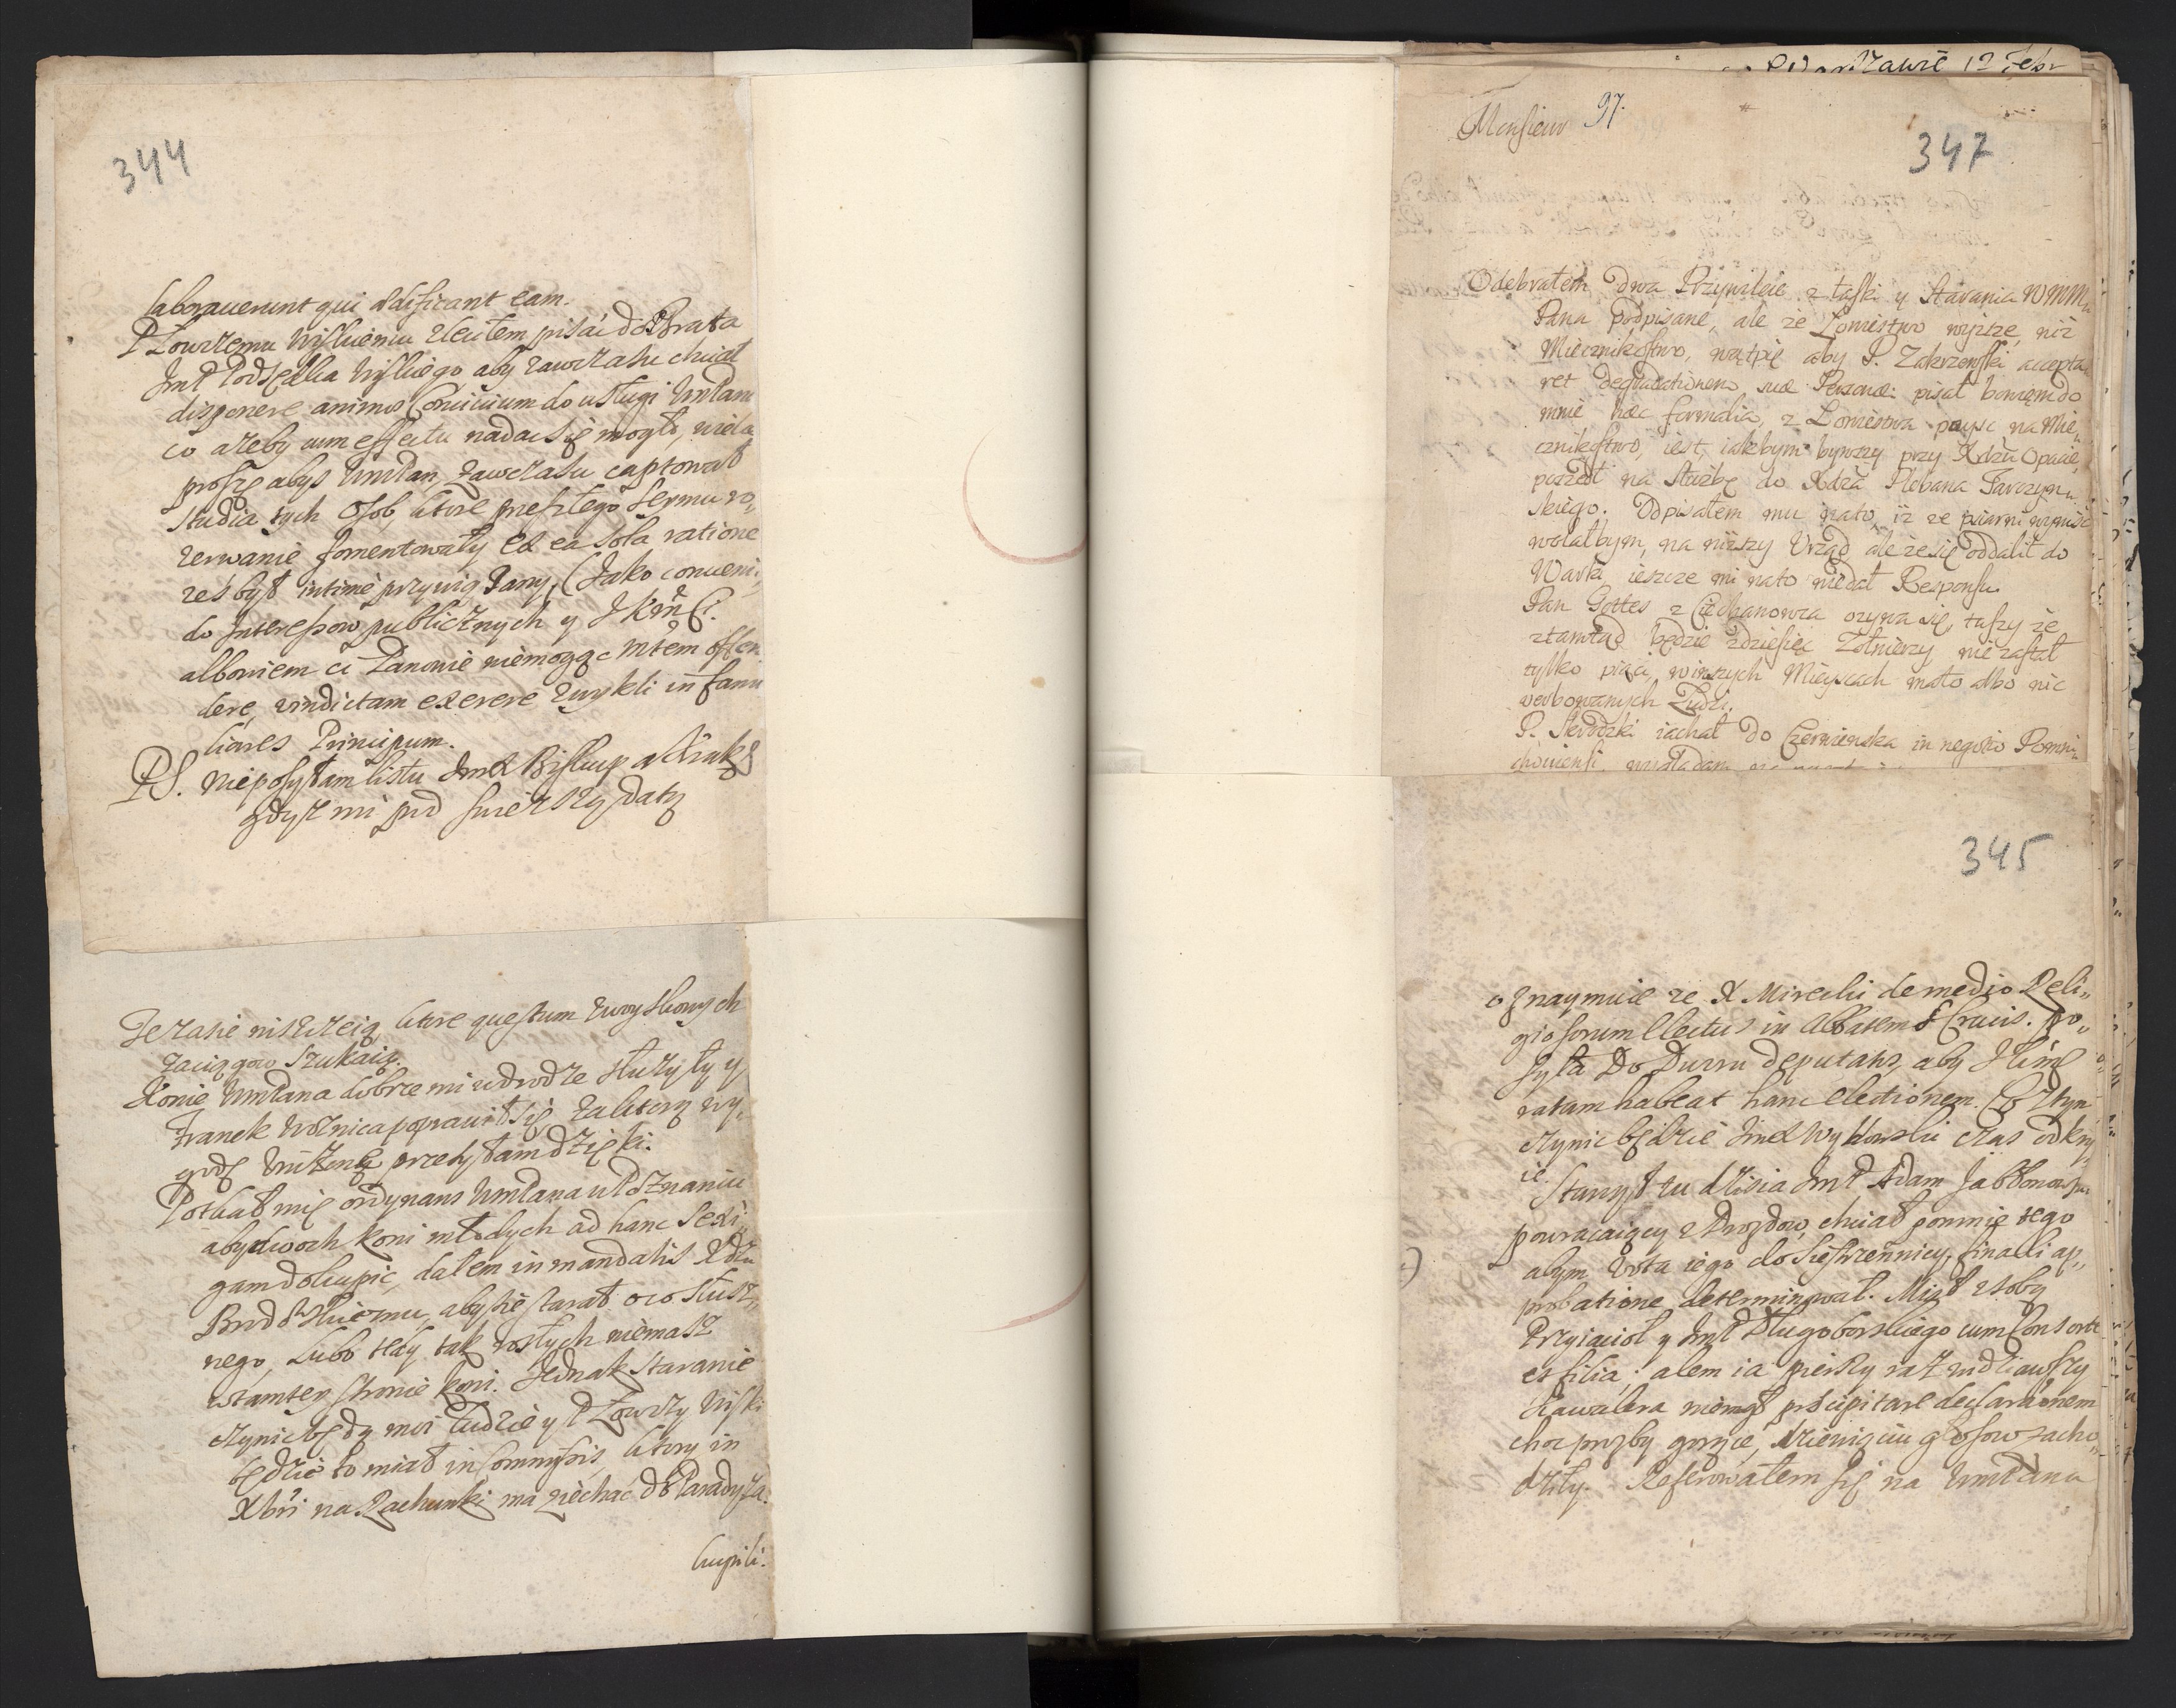 344
laboraverunt qui ædificant eam.
P. Łowczemu Wiskiemu zleciłem pisać do Brata
Jmć Podsędka Wiskiego aby zawczasu chciał
disponere animos Concivium do usługi WmPana
co ażeby cum effectu nadać się mogło, wielce
proszę abyś WmPan, zawczasu captował
studia tych Osob, ktore przeszłego Seymu ro„
zerwanie fomentowały ex ea sola ratione
żeś był intimè przywiązany, (Jako conveni„
do Jnteressow publicznych y J Kr
albowiem ci Panowie niemogąc offen
dere, vindictam exerere zwykli in fami
liares Principum.
PS. nieposyłam listu Jmć Biskup
gdyż mi pod swieższą datą
Te zasie niszczeią ktore questum zwoyskowych
zaciągow szukaią.
Konie WmPana dobrze mi w drodze służyły y
Franek Woznica poprawił się, za ktorą wy„
godę uniżone przesyłam dzięki.
Potkał mię ordynans WmPana w Poznaniu
abym dwoch koni młodych ad hanc Sexi„
gam dokupić, dałem in mandatis Xdzu
aby się starał o co słusz„
nego, Lubo tedy tak rosłych niemasz
w tamtey stronie koni. Jednak staranie
czynić będą moi Ludzie y P Łowczy Wiski
będzie to miał in Commissis, ktory in
Xbri na Rachunki ma ziechać do Paradyża.
kupili.
w Warszawie 12 Febr
Monsieur 97.
347
Odebrałem dwa Przywileie z łaski y starania WMM
Pana podpisane, ale że Łowiestwo wyższe, niż
Miecznikostwo, wątpię aby P. Zakrzewski accepta„
ret degradationem suæ Personæ: pisał bowiem do
mnie hæc formalia, z Łowiestwa poysc na Mie„
cznikostwo, iest, iakbym bywszy przy Xdzu Opacie,
poszedł na służbę do Xdza Plebana Tarczyn„
skiego. Odpisałem mu nato, iż ze psiarni wyniść
wolałbym, na niższy Urząd, ale że się oddalił do
Warki ieszcze mi nato niedał Responsu.
Pan Gottes z Ciechanowca ozywa się, tuszy że
ztamtąd będzie zdziesięć Zołnierzy, nie zastał
tylko pięci, winszych Mieyscach mało albo nic
werbowanych Ludzi.
P. Skrodzki iachał do Czerwienska in negotio Pomni„
chowiensi
345
oznaymuie że X Mirecki de medio Reli„
giosorum Electus in Abbatem S Crucis. po„
syła Do Dworu deputatos, aby
ratam habeat hanc Electionem. Co z tym
czynić będzie Jmć Wykowski czas odkry„
ie.
Stanął tu dzisia Jmć Adam Jabłonowski
powracaiący z Drozdow, chciał pomnie tego
abym vota iego do Siestrzennicy, finali ap„
probatione determinował. Miał z sobą
Przyiaciół y Jmć Długoborskiego cum Consorte
et filia; alem ia pierszy raz widziawszy
Kawalera niemogł præcipitare declarationem
choć prozby gorące, y zdięwięciu głosow zacho„
dziły. Referowałem się na WmPana